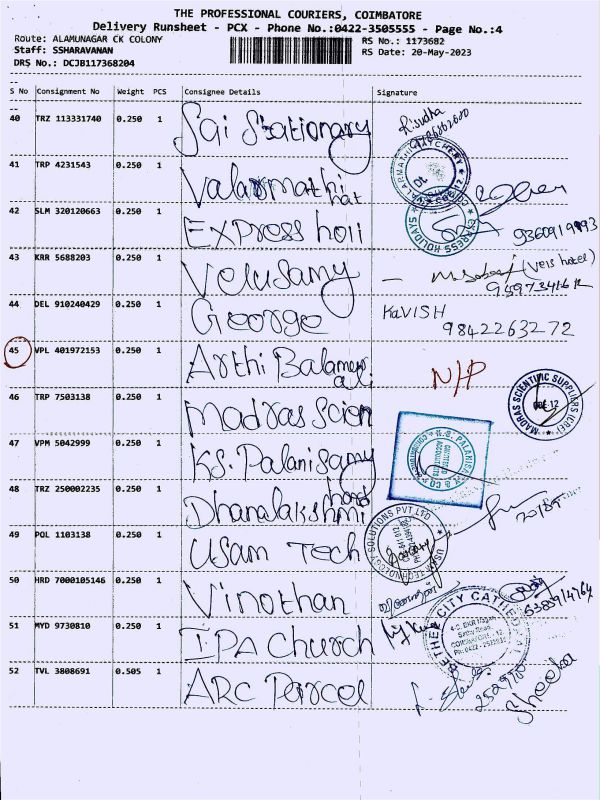 THE PROFESSIONAL COURIERS, COIMBATORE
Delivery Runsheet - PCX - Phone No.:0422-3505555 - Page No.:4
Route: ALAMUNAGAR CK COLONY
RS No.: 1173682
Staff: SSHARAVANAN
RS Date: 20-May-2023
DRS No.: DCJB117368204
S No Consignment No Weight PCS Consignee Details Signature
40 TRZ 113331740 0.250 1 Sai Stationary R.sudha
41 TRP 4231543 0.250 1 Valarmathi hat
42 SLM 320120663 0.250 1 Express holi EXPRESS HOLIDAYS
43 KRR 5688203 0.250 1 Velusamy (Vels hotel)
44 DEL 910240429 0.250 1 George KaVISH 9842263272
45 VPL 401972153 0.250 1 Arthi Balamurali N/P
46 TRP 7503138 0.250 1 Madras Scien MADRAS SCIENTIFIC SUPPLIERS (CBE) CBE-12
47 VPM 5042999 0.250 1 KS. Palanisamy
48 TRZ 250002235 0.250 1 Dhanalakshmi
49 POL 1103138 0.250 1 Usam Tech USAM TECHNOLOGY SOLUTIONS PVT LTD
50 HRD 7000105146 0.250 1 Vinothan
51 MYD 9730810 0.250 1 IPA Church
52 TVL 3808691 0.505 1 ARC Parcel Sheeba